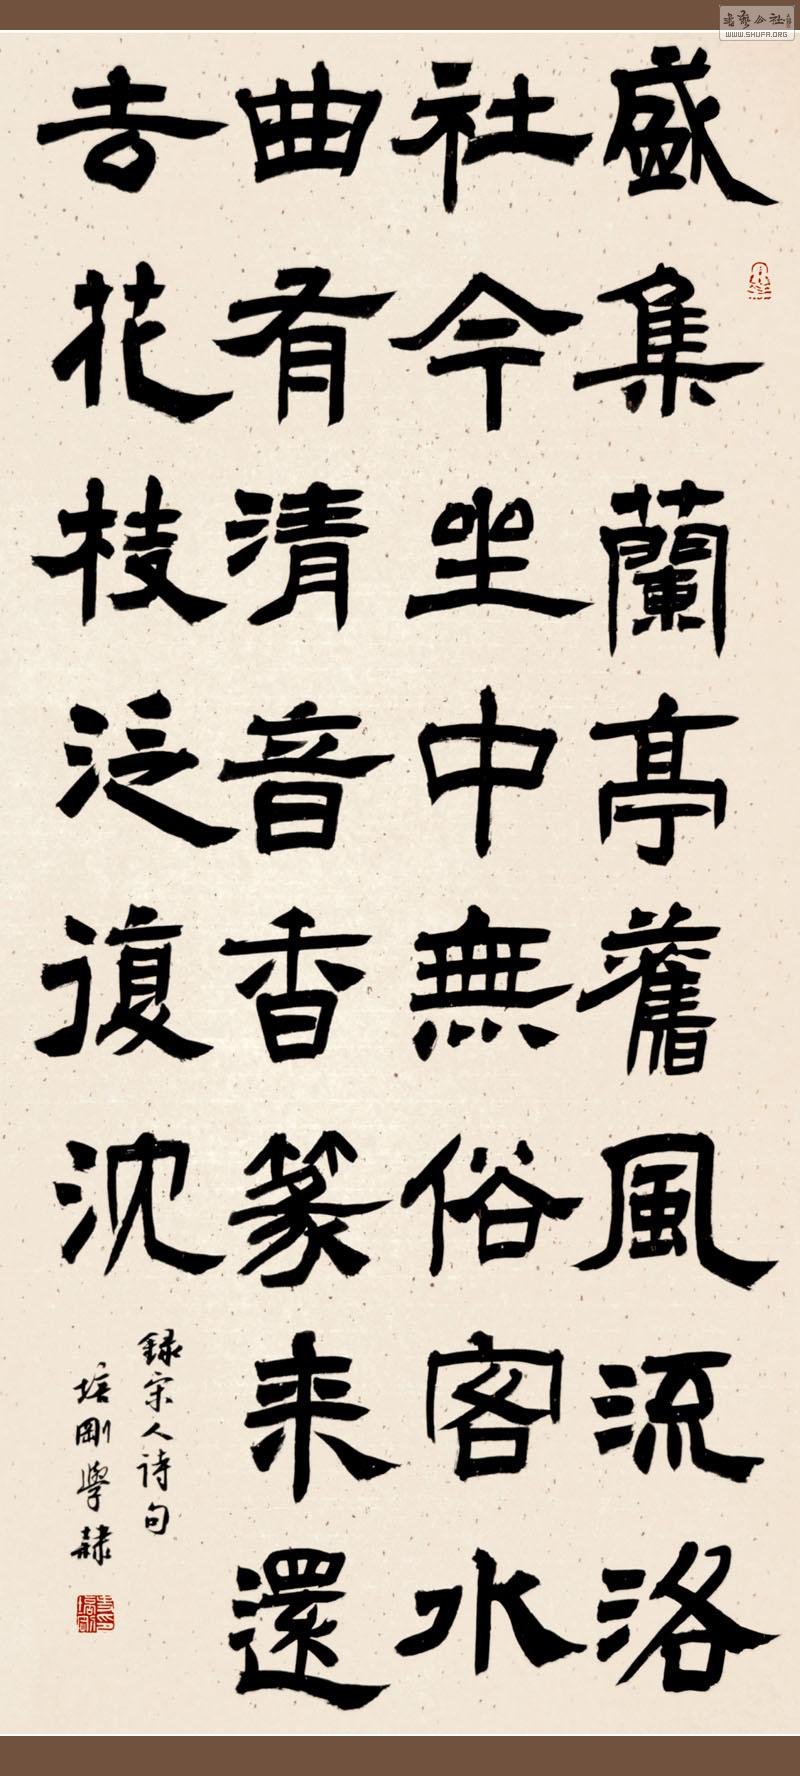 盛集蘭亭舊風流洛
社今坐中無俗客水
曲有清音香篆来還
去花枝泛復沈
録宋人詩句
培剛學隸
WWW.SHUFA.ORG